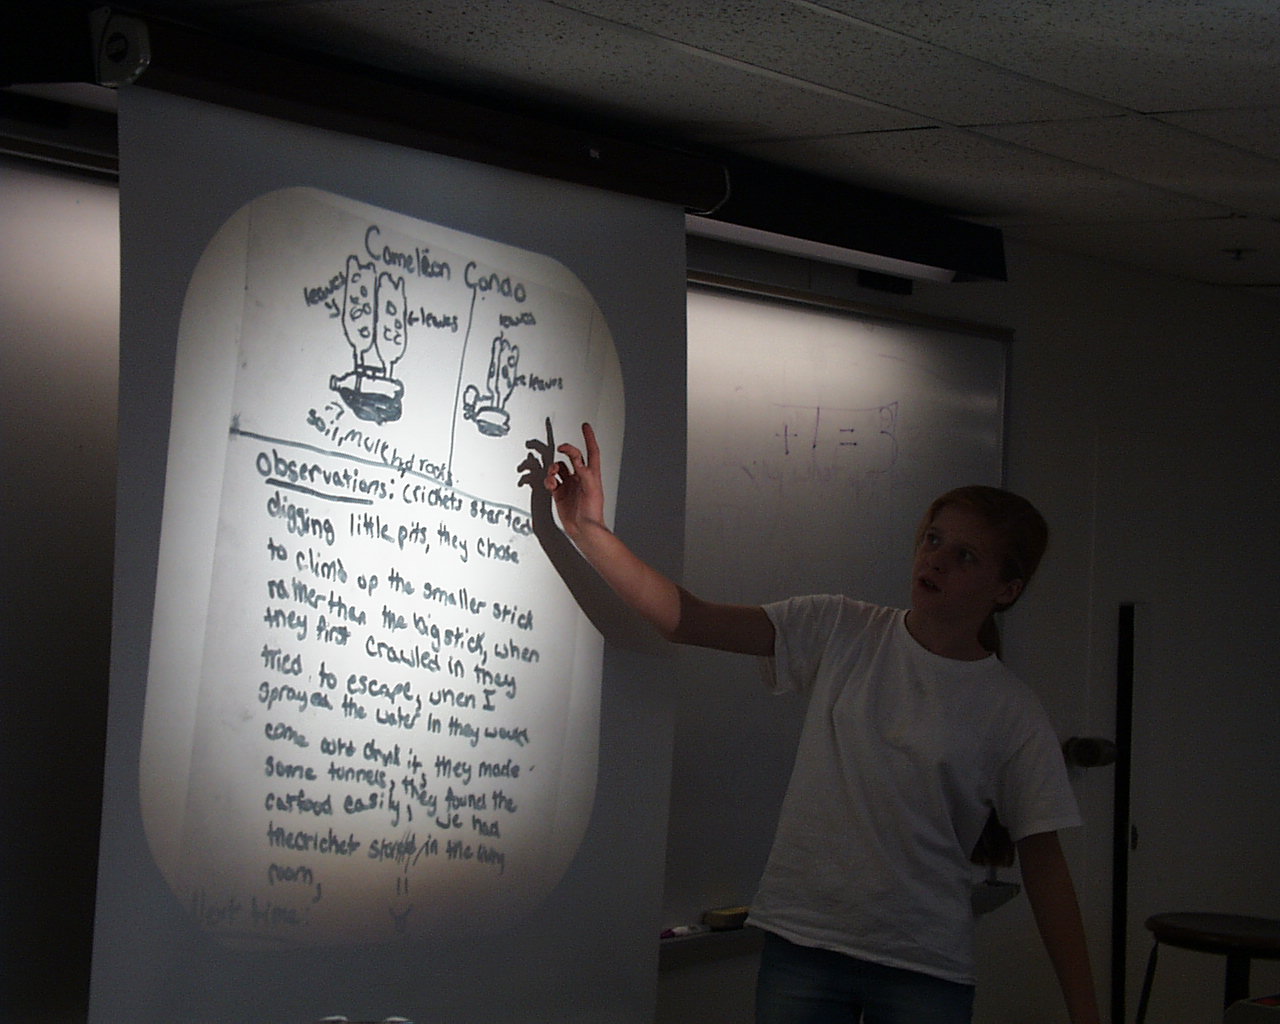 Cameleon Condo
leaves
leaves
leaves
leaves
soil, mulch, rocks.
Observations: crickets started
digging little pits, they chose
to climb up the smaller stick
rather than the big stick, when
they first crawled in they
tried to escape, when I
sprayed the water in they would
come and drink it, they made
some tunnels, they found the
catfood easily, we had
the cricket in the living
room,
Next time:
+ 1 = 3